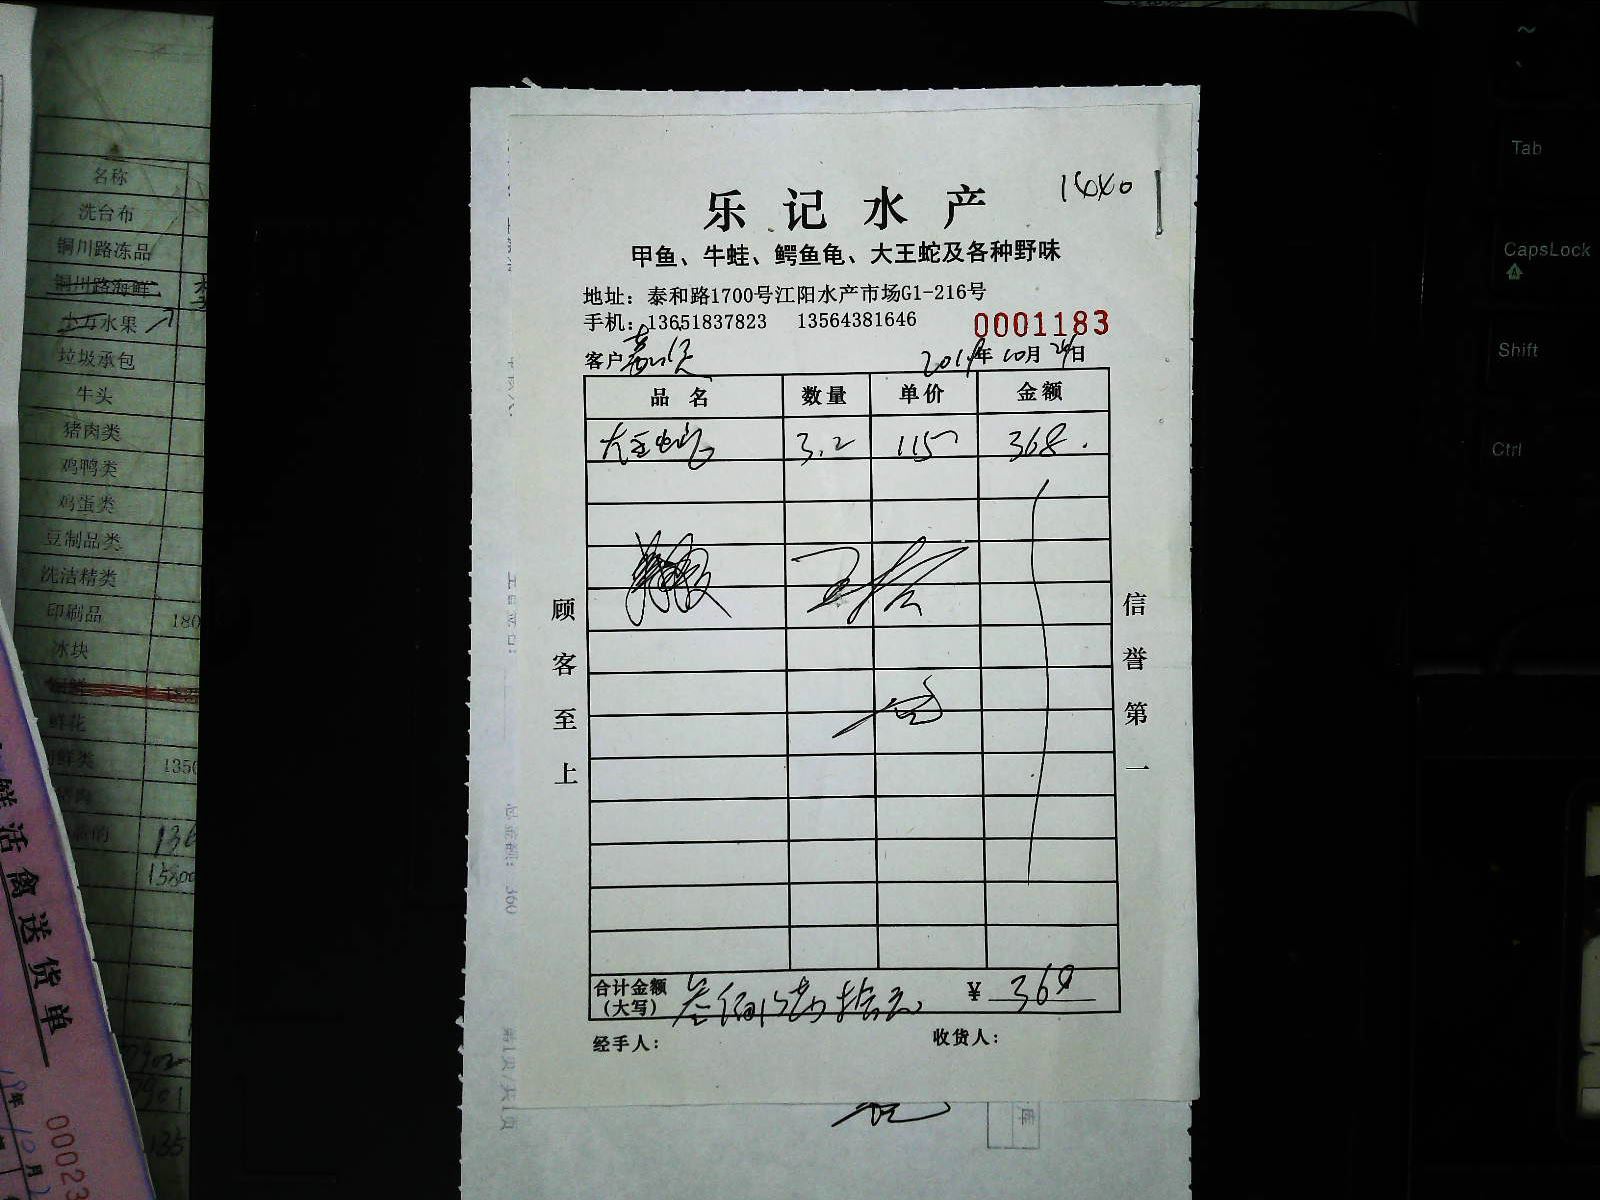 乐记水产
甲鱼、牛蛙、鳄鱼龟、大王蛇及各种野味
地址：泰和路1700号江阳水产市场G1-216号
手机：13651837823 13564381646
0001183
客户
年10月 日
品名 数量 单价 金额
大王蛇 3.2 115 368.
顾客至上
信誉第一
合计金额
（大写） ¥ 368
经手人： 收货人：
名称
洗台布
铜川路冻品
铜川路海鲜
水果
垃圾承包
牛头
猪肉类
鸡鸭类
鸡蛋类
豆制品类
洗洁精类
印刷品 180
冰块
鲜花
鲜类 1350
鲜活禽送货单
00023
Tab
CapsLock
Shift
Ctrl